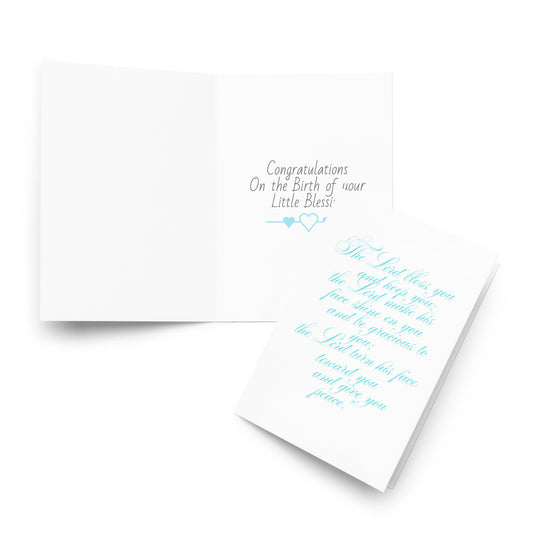 Congratulations
On the Birth of your
Little
The Lord bless you
and keep you;
the Lord make his
face shine on you
and be gracious to
you;
the Lord turn his face
toward you
and give you
peace.